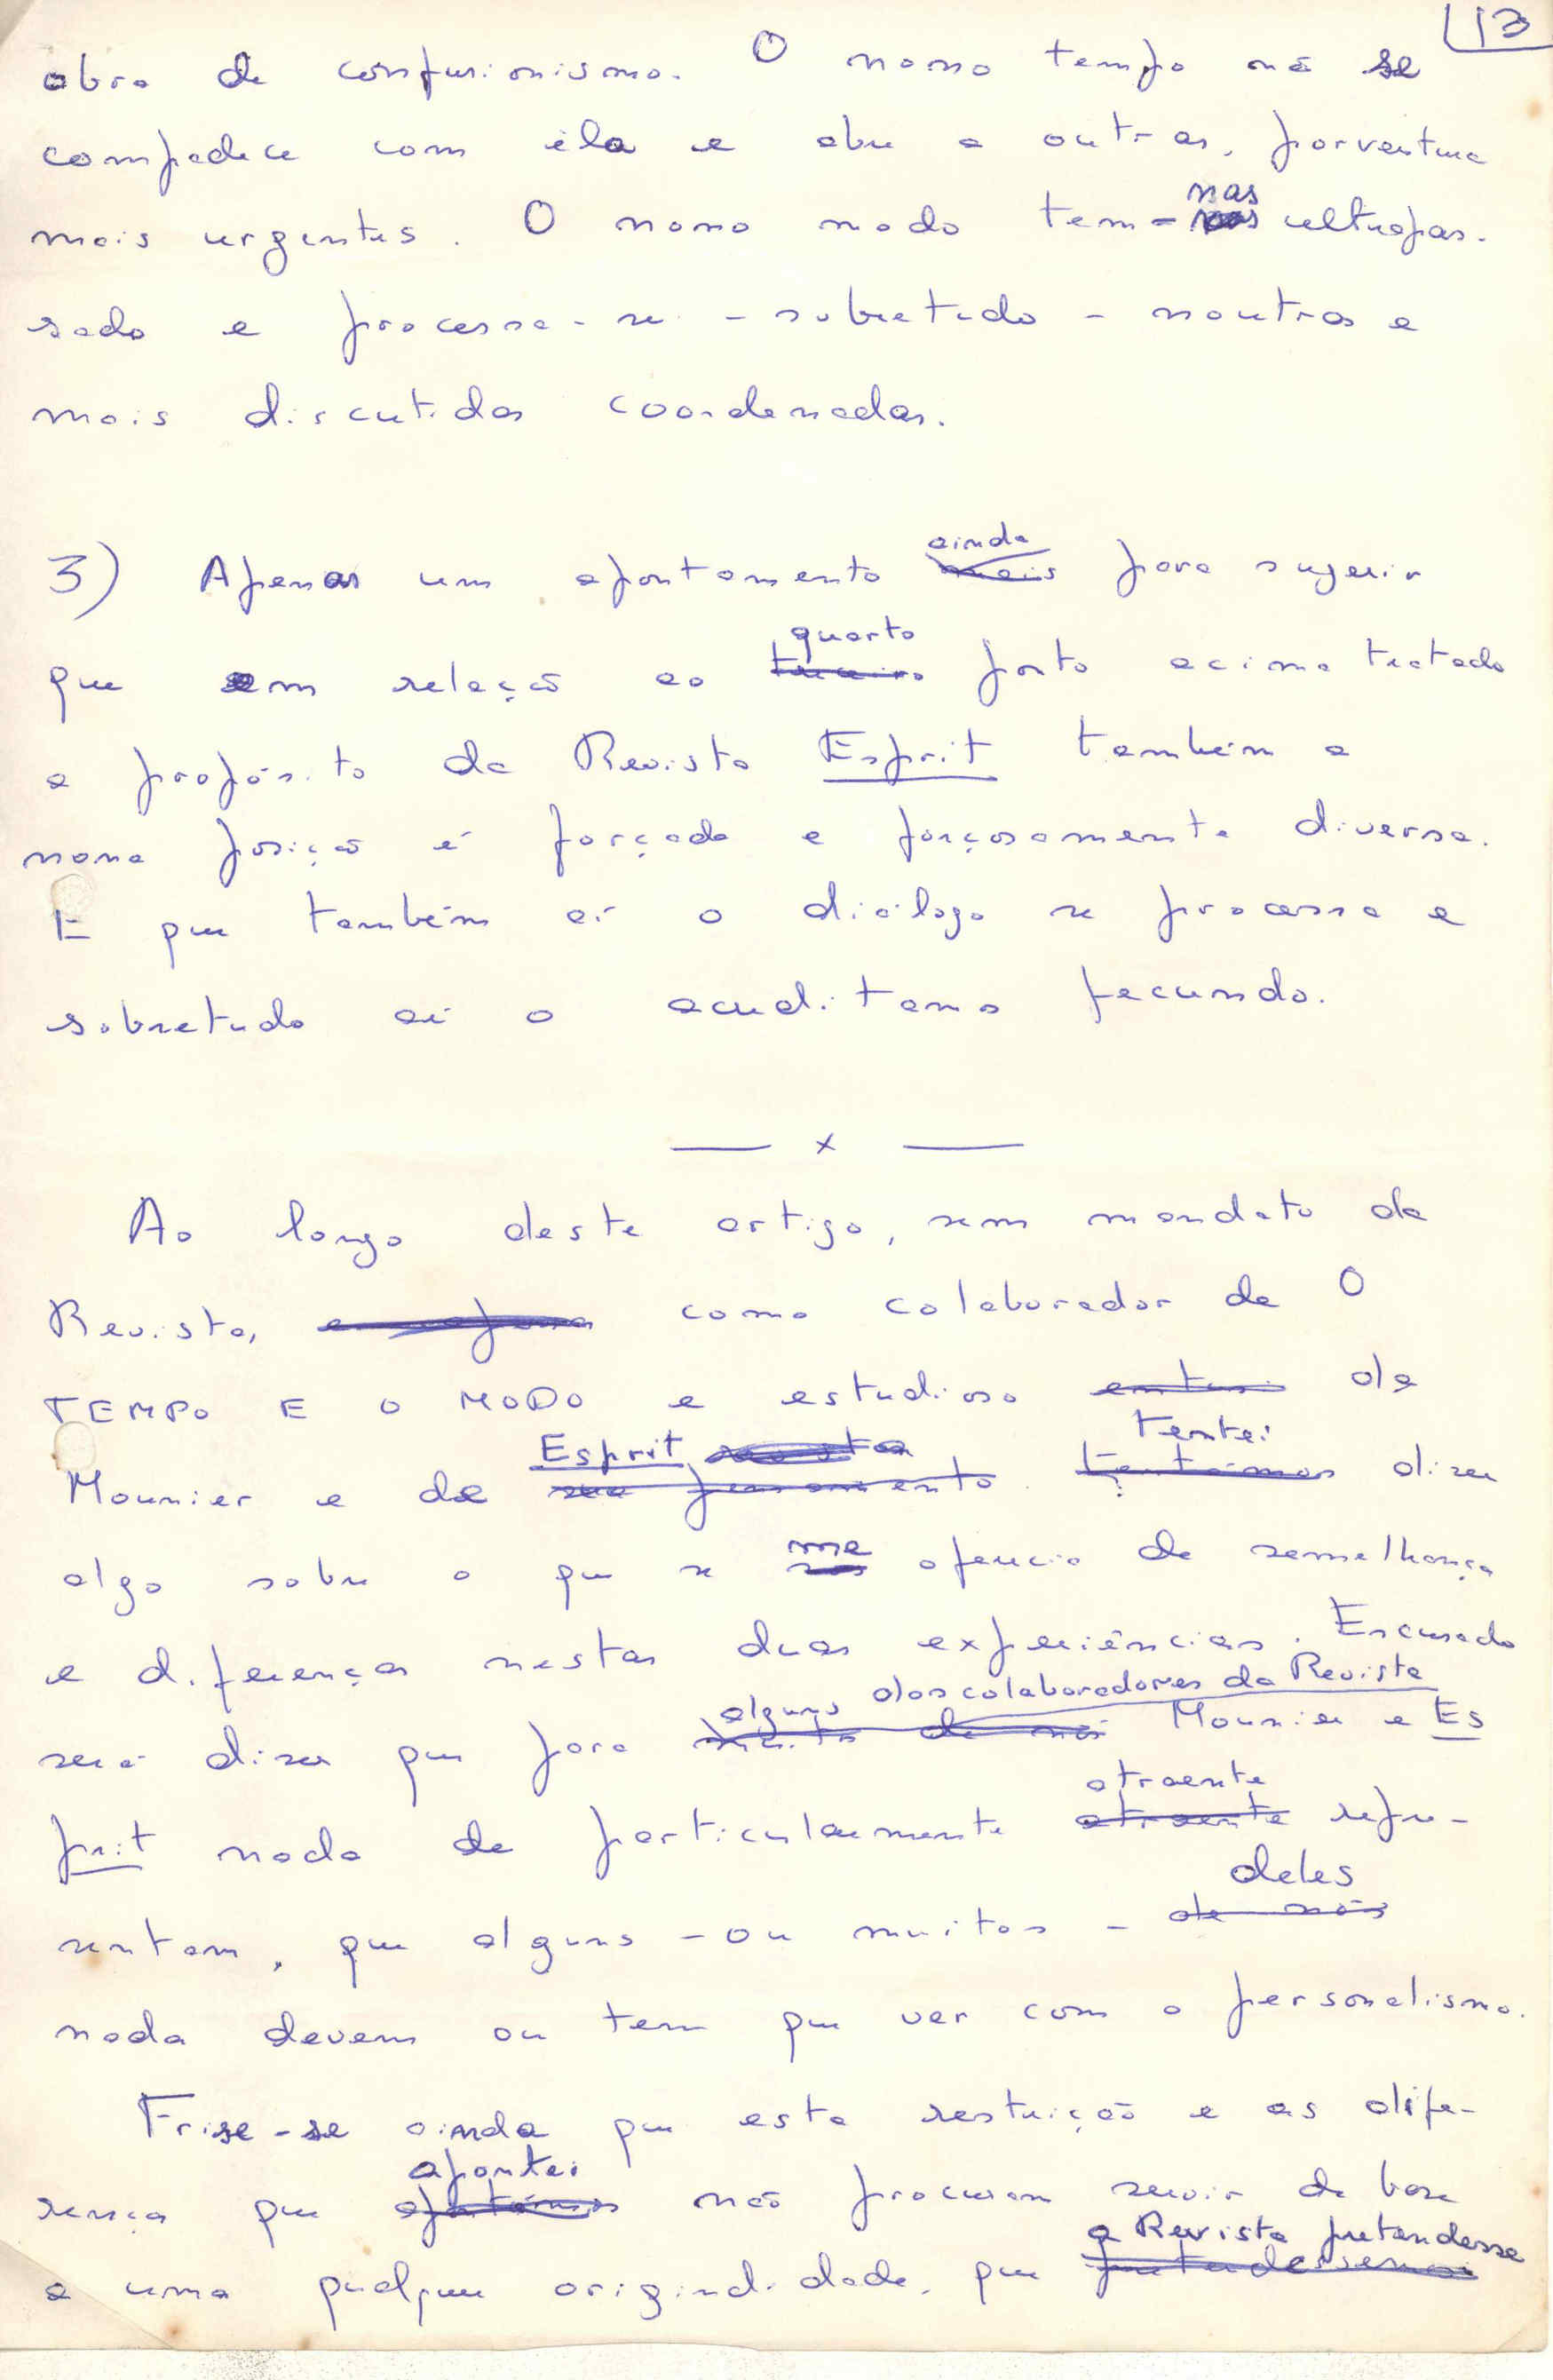 13
obra de confusionismo. O nosso tempo não se
compadece com ela e abre a outras, porventura
mais urgentes. O nosso modo tem-nas ultrapas-
sado e processa-se - sobretudo - noutras e
mais discutidas coordenadas.
3) Apenas um apontamento ~~mais~~ ainda para sugerir
que em relação ao ~~terceiro~~ quarto ponto acima tratado
a propósito da Revista Esprit também a
nossa posição é forçada e forçosamente diversa.
E que também aí o diálogo se processa e
sobretudo aí o acreditamos fecundo.
— x —
Ao longo deste artigo, sem mandato da
Revista, como colaborador de O
TEMPO E O MODO e estudioso de
Mounier e de ~~seu pensamento~~ Esprit, ~~tentámos~~ tentei dizer
algo sobre o que se ~~nos~~ me oferecia de semelhança
e diferenças nestas duas experiências. Escusado
será dizer que para ~~muitos de nós~~ alguns dos colaboradores da Revista Mounier e Es
prit nada de particularmente ~~atraente~~ atraente repre-
sentam, que alguns - ou muitos - ~~de nós~~ deles
nada devem ou tem que ver com o personalismo.
Frise-se ainda que esta restrição e as dife-
renças que ~~apontámos~~ apontei não procuram servir de base
a uma qualquer originalidade, que ~~pretendessemos~~ a Revista pretendesse